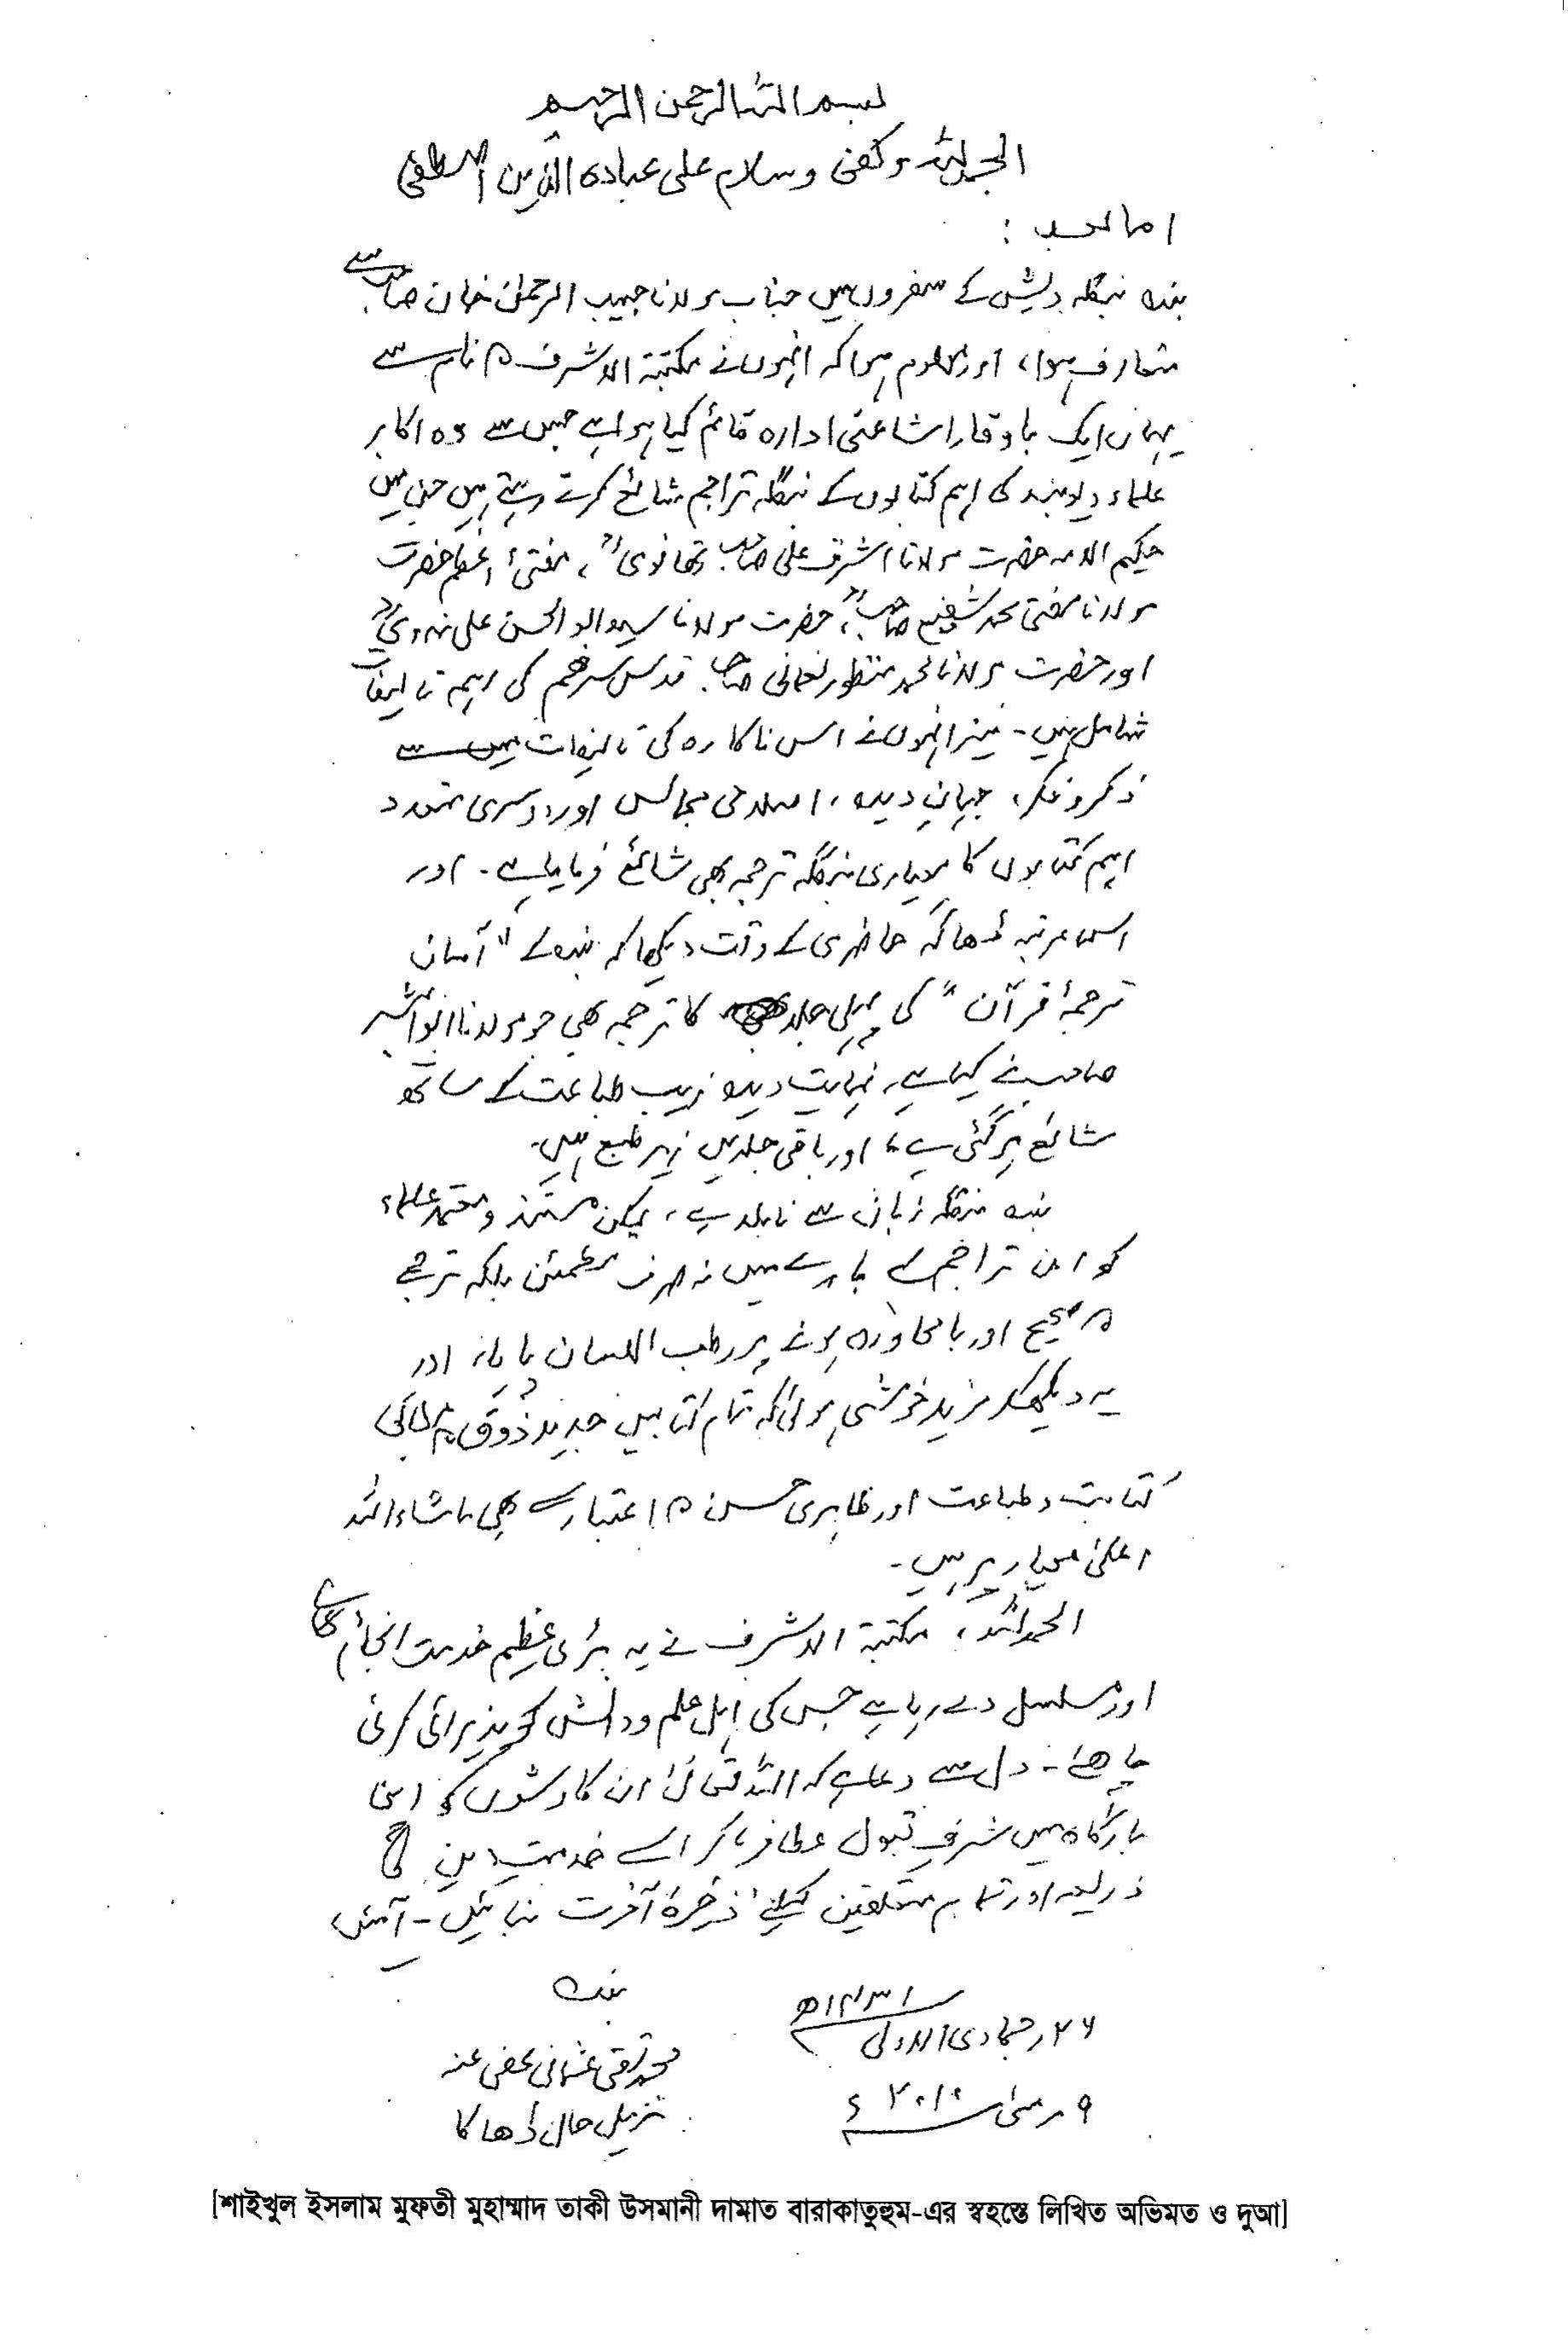 بسم اللہ الرحمن الرحیم
الحمد للہ وکفی وسلام علی عبادہ الذین اصطفی
اما بعد :
بندہ بنگلہ دیش کے سفروں میں جناب مولانا حبیب الرحمٰن خان صاحب سے
متعارف ہوا، اور معلوم ہوا کہ انہوں نے مکتبۃ الاشرف کے نام سے
یہاں ایک باوقار اشاعتی ادارہ قائم کیا ہوا ہے جس سے وہ اکابر
علماء دیوبند کی اہم کتابوں کے بنگلہ تراجم شائع کرتے رہتے ہیں جن میں
حکیم الامہ حضرت مولانا اشرف علی صاحب تھانویؒ، مفتئ اعظم حضرت
مولانا مفتی محمد شفیع صاحبؒ، حضرت مولانا سید ابو الحسن علی ندویؒ
اور حضرت مولانا محمد منظور نعمانی صاحب قدس سرھم کی اہم تالیفات
شامل ہیں۔ نیز انہوں نے اس ناکارہ کی تالیفات میں سے
ذکر و فکر، جہانِ دیدہ، اصلاحی مجالس اور دوسری متعدد
اہم کتابوں کا معیاری بنگلہ ترجمہ بھی شائع فرمایا ہے۔ اور
اس مرتبہ ڈھاکہ حاضری کے وقت دیکھا کہ بندہ کے "آسان
ترجمۂ قرآن" کی پہلی جلد کا ترجمہ بھی جو مولانا ابو البشیر
صاحب نے کیا ہے، نہایت دیدہ زیب طباعت کے ساتھ
شائع ہو گئی ہے، اور باقی جلدیں زیر طبع ہیں۔
بندہ بنگلہ زبان سے نابلد ہے، لیکن مستند و معتمد علماء
کو ان تراجم کے بارے میں نہ صرف مطمئن بلکہ ترجمے
کے صحیح اور بامحاورہ ہونے پر رطب اللسان پایا، اور
یہ دیکھکر مزید خوشی ہوئی کہ تمام کتابیں جدید ذوق کے مطابق
کتابت و طباعت اور ظاہری حسن کے اعتبار سے بھی ماشاء اللہ
اعلیٰ معیار پر ہیں۔
الحمد للہ، مکتبۃ الاشرف نے یہ بڑی عظیم خدمت انجام دی ہے
اور مسلسل دے رہا ہے جس کی اہل علم و دانش کو پذیرائی کرنی
چاہئے۔ دل سے دعا ہے کہ اللہ تعالیٰ ان کاوشوں کو اپنی
بارگاہ میں شرفِ قبول عطا فرما کر اسے خدمتِ دین کا
ذریعہ اور تمام متعلقین کیلئے ذخیرۂ آخرت بنائیں۔ آمین
بندہ
محمد تقی عثمانی عفی عنہ
نزیل حال ڈھاکا
۲۶؍ جمادی الاولی ۱۴۳۱ھ
۹؍ مئی ۲۰۱۰ء
[শাইখুল ইসলাম মুফতী মুহাম্মাদ তাকী উসমানী দামাত বারাকাতুহুম-এর স্বহস্তে লিখিত অভিমত ও দুআ]